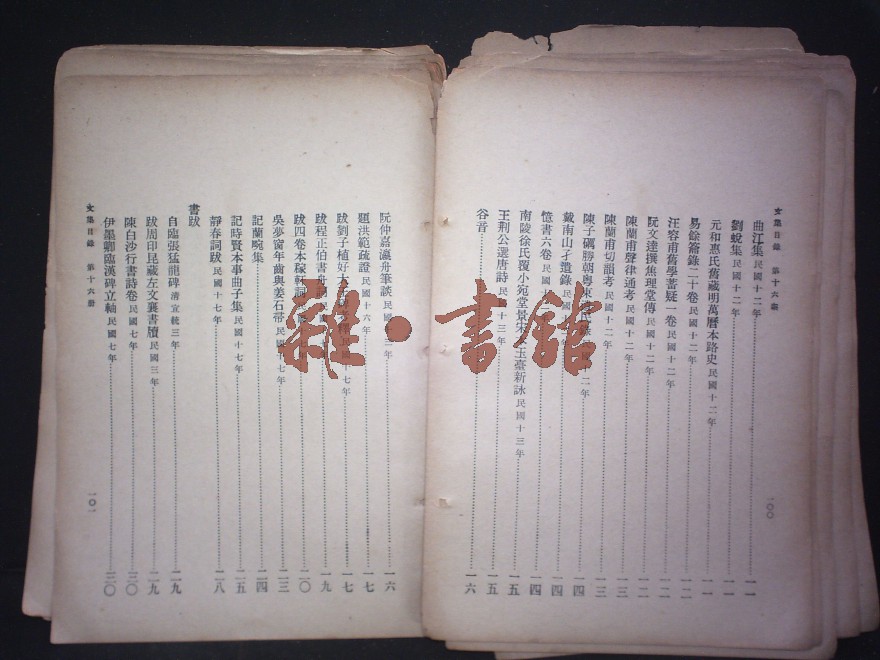 文集目錄 第十六冊
曲江集 民國十二年 一一
劉蛻集 民國十二年 一一
元和惠氏舊藏明萬曆本路史 民國十二年 一一
易餘籥錄二十卷 民國十二年 一二
汪容甫舊學蓄疑一卷 民國十二年 一二
阮文達撰焦理堂傳 民國十二年 一二
陳蘭甫聲律通考 民國十二年 一三
陳蘭甫切韻考 民國十二年 一三
陳子礪勝朝粵東 國十二年 一四
戴南山孑遺錄 民國 一四
憶書六卷 民國 一四
南陵徐氏覆小宛堂景宋 玉臺新詠 民國十三年 一五
王荊公選唐詩 民國十三年 一五
谷音 一六
一〇〇
文集目錄 第十六冊
阮仲嘉瀛舟筆談 民國 三年 一六
題洪範疏證 民國十六年 一七
跋劉子植好大 七年 一七
跋程正伯書舟詞 年 一九
跋四卷本稼軒詞 年 二〇
吳夢窗年齒與姜石帚 民國 七年 二三
記蘭畹集 二四
記時賢本事曲子集 民國十七年 二五
靜春詞跋 民國十七年 二八
書跋
自臨張猛龍碑 清宣統三年 二九
跋周印昆藏左文襄書牘 民國三年 二九
陳白沙行書詩卷 民國七年 三〇
伊墨卿臨漢碑立軸 民國七年 三〇
一〇一
雜·書館